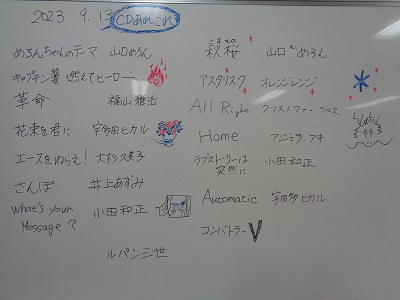 2023 9.13 CDあれこれ
めろんちゃんのテーマ 山口めろん
キャプテン翼 燃えてヒーロー
革命 福山雅治
花束を君に 宇多田ヒカル
エースをねらえ! 大杉久美子
さんぽ 井上あずみ
What's your Message? 小田和正
ルパン三世
秋桜 山口めろん
アスタリスク オレンジレンジ
All Right クリストファー クロス
Home アンジェラ・アキ
ラブストーリーは突然に 小田和正
Automatic 宇田多ヒカル
コンバトラーV